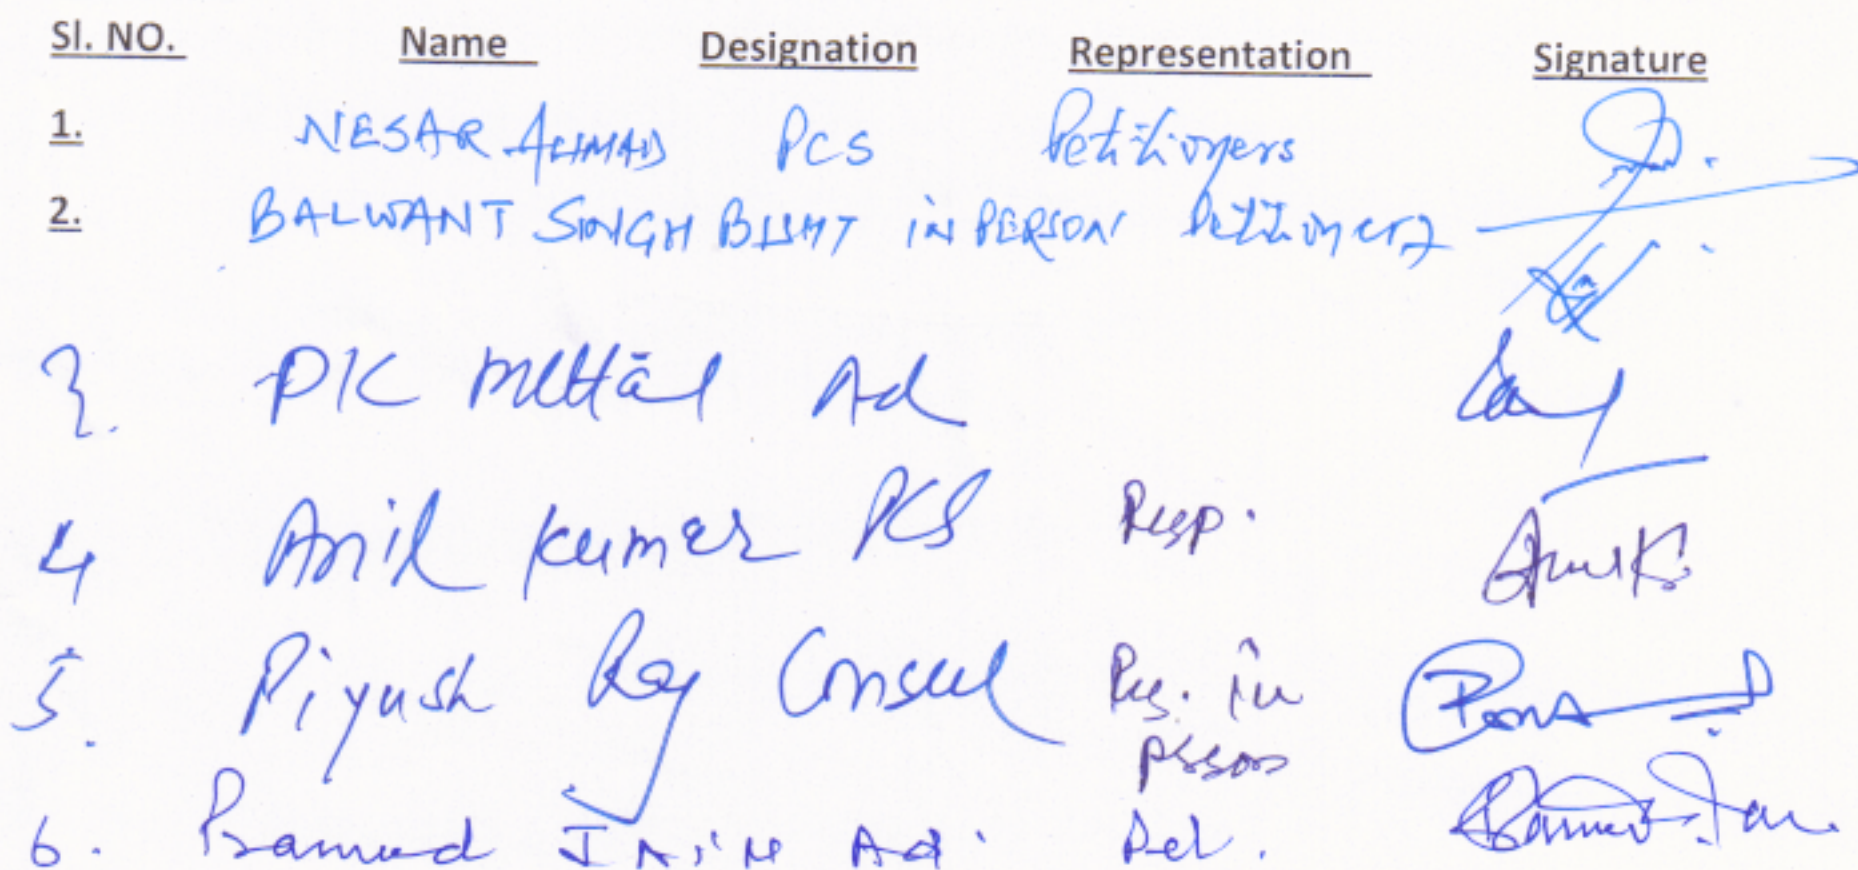 Sl. NO. Name Designation Representation Signature
1. NESAR AHMAD PCS Petitioners
2. BALWANT SINGH BISHT IN PERSON Petitioners
3. PK Mittal Ad
4 Anil Kumar PCS Resp.
5. Piyush Roy Consul in
6. Pramod JAIN Ad.